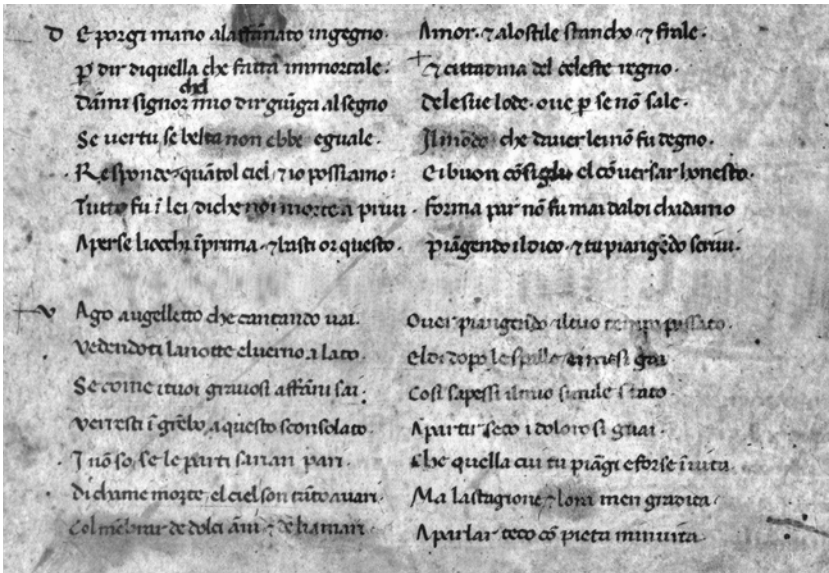 D E porgi mano alaffãnato ingegno. Amor. ⁊ alostile stancho ⁊ frale.
ꝑ dir diquella che fatta immortale. ⁊ cittadina del celeste regno.
chel
Dãmi signor mio dir giũga al segno Delesue lode. oue ꝑ se nõ sale.
Se uertu se belta non ebbe eguale. Il mõdo che dauer lei nõ fu degno.
Responde. quãtol ciel ⁊ io possiamo: Ei buon cõsiglu el cõuersar honesto.
Tutto fu ĩ lei diche noi morte a priui. forma par nõ fu mai daldi chadamo
Aperse liocchi ĩprima. ⁊ basti or questo. piãgendo il dico. ⁊ tu piangẽdo scriui.
V Ago augelletto che cantando uai. Ouer piangendo il tuo tempo passato.
Vedendoti la notte el uerno a lato. El di dopo le spalle e i mesi gai
Se come i tuoi grauosi affãni sai. Cosi sapessi il mio simile stato
Verresti ĩ grẽbo a questo sconsolato. A partir seco i dolorosi guai.
I nõ so se le parti sarian pari. Che quella cui tu piãgi e forse ĩ uita.
Di chame morte, el ciel son tãto auari. Ma la stagione ⁊ lora men gradita.
Col mẽbrar de dolci ãni ⁊ de li amari. A parlar teco cõ pieta minuita.